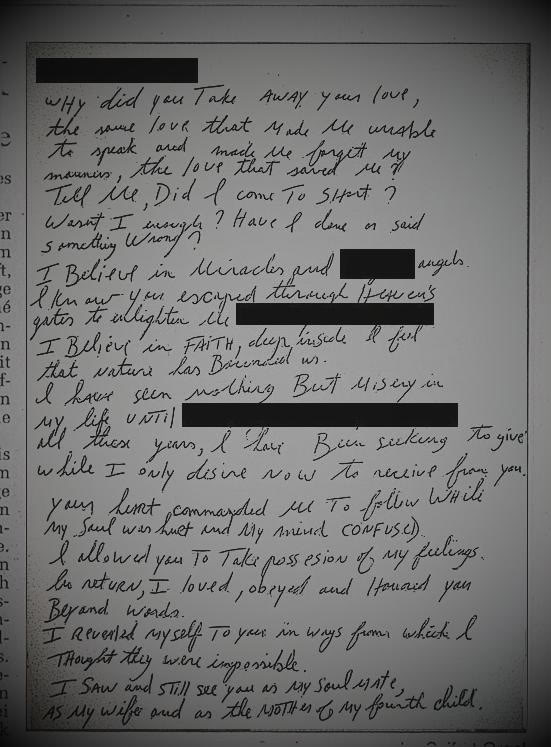 WHY did you Take AWAY your love,
the same love that Made Me unable
to speak and made Me forgett my
manners, the love that saved Me?
Tell Me, Did I come To SHort?
Wasnt I enough? Have I done or said
something Wrong?
I Believe in Miracles and angels.
I Know you escaped through Heaven's
gates to enlighten Me
I Believe in FAITH, deep inside I feel
that nature has us.
I have seen nothing But Misery in
my life UNTil
all these years, I have Been seeking to give
while I only desire NOW to receive from you.
your heart commanded Me To follow While
My Soul was hurt and My mind CONFUSED.
I allowed you To Take possesion of my feelings.
In return, I loved, obeyed and Honored you
Beyand words.
I Revealed myself To you in ways from which I
THought they were impossible.
I SAW and STill see you as My Soul Mate,
AS My Wife and as the MOTHER of My fourth child.